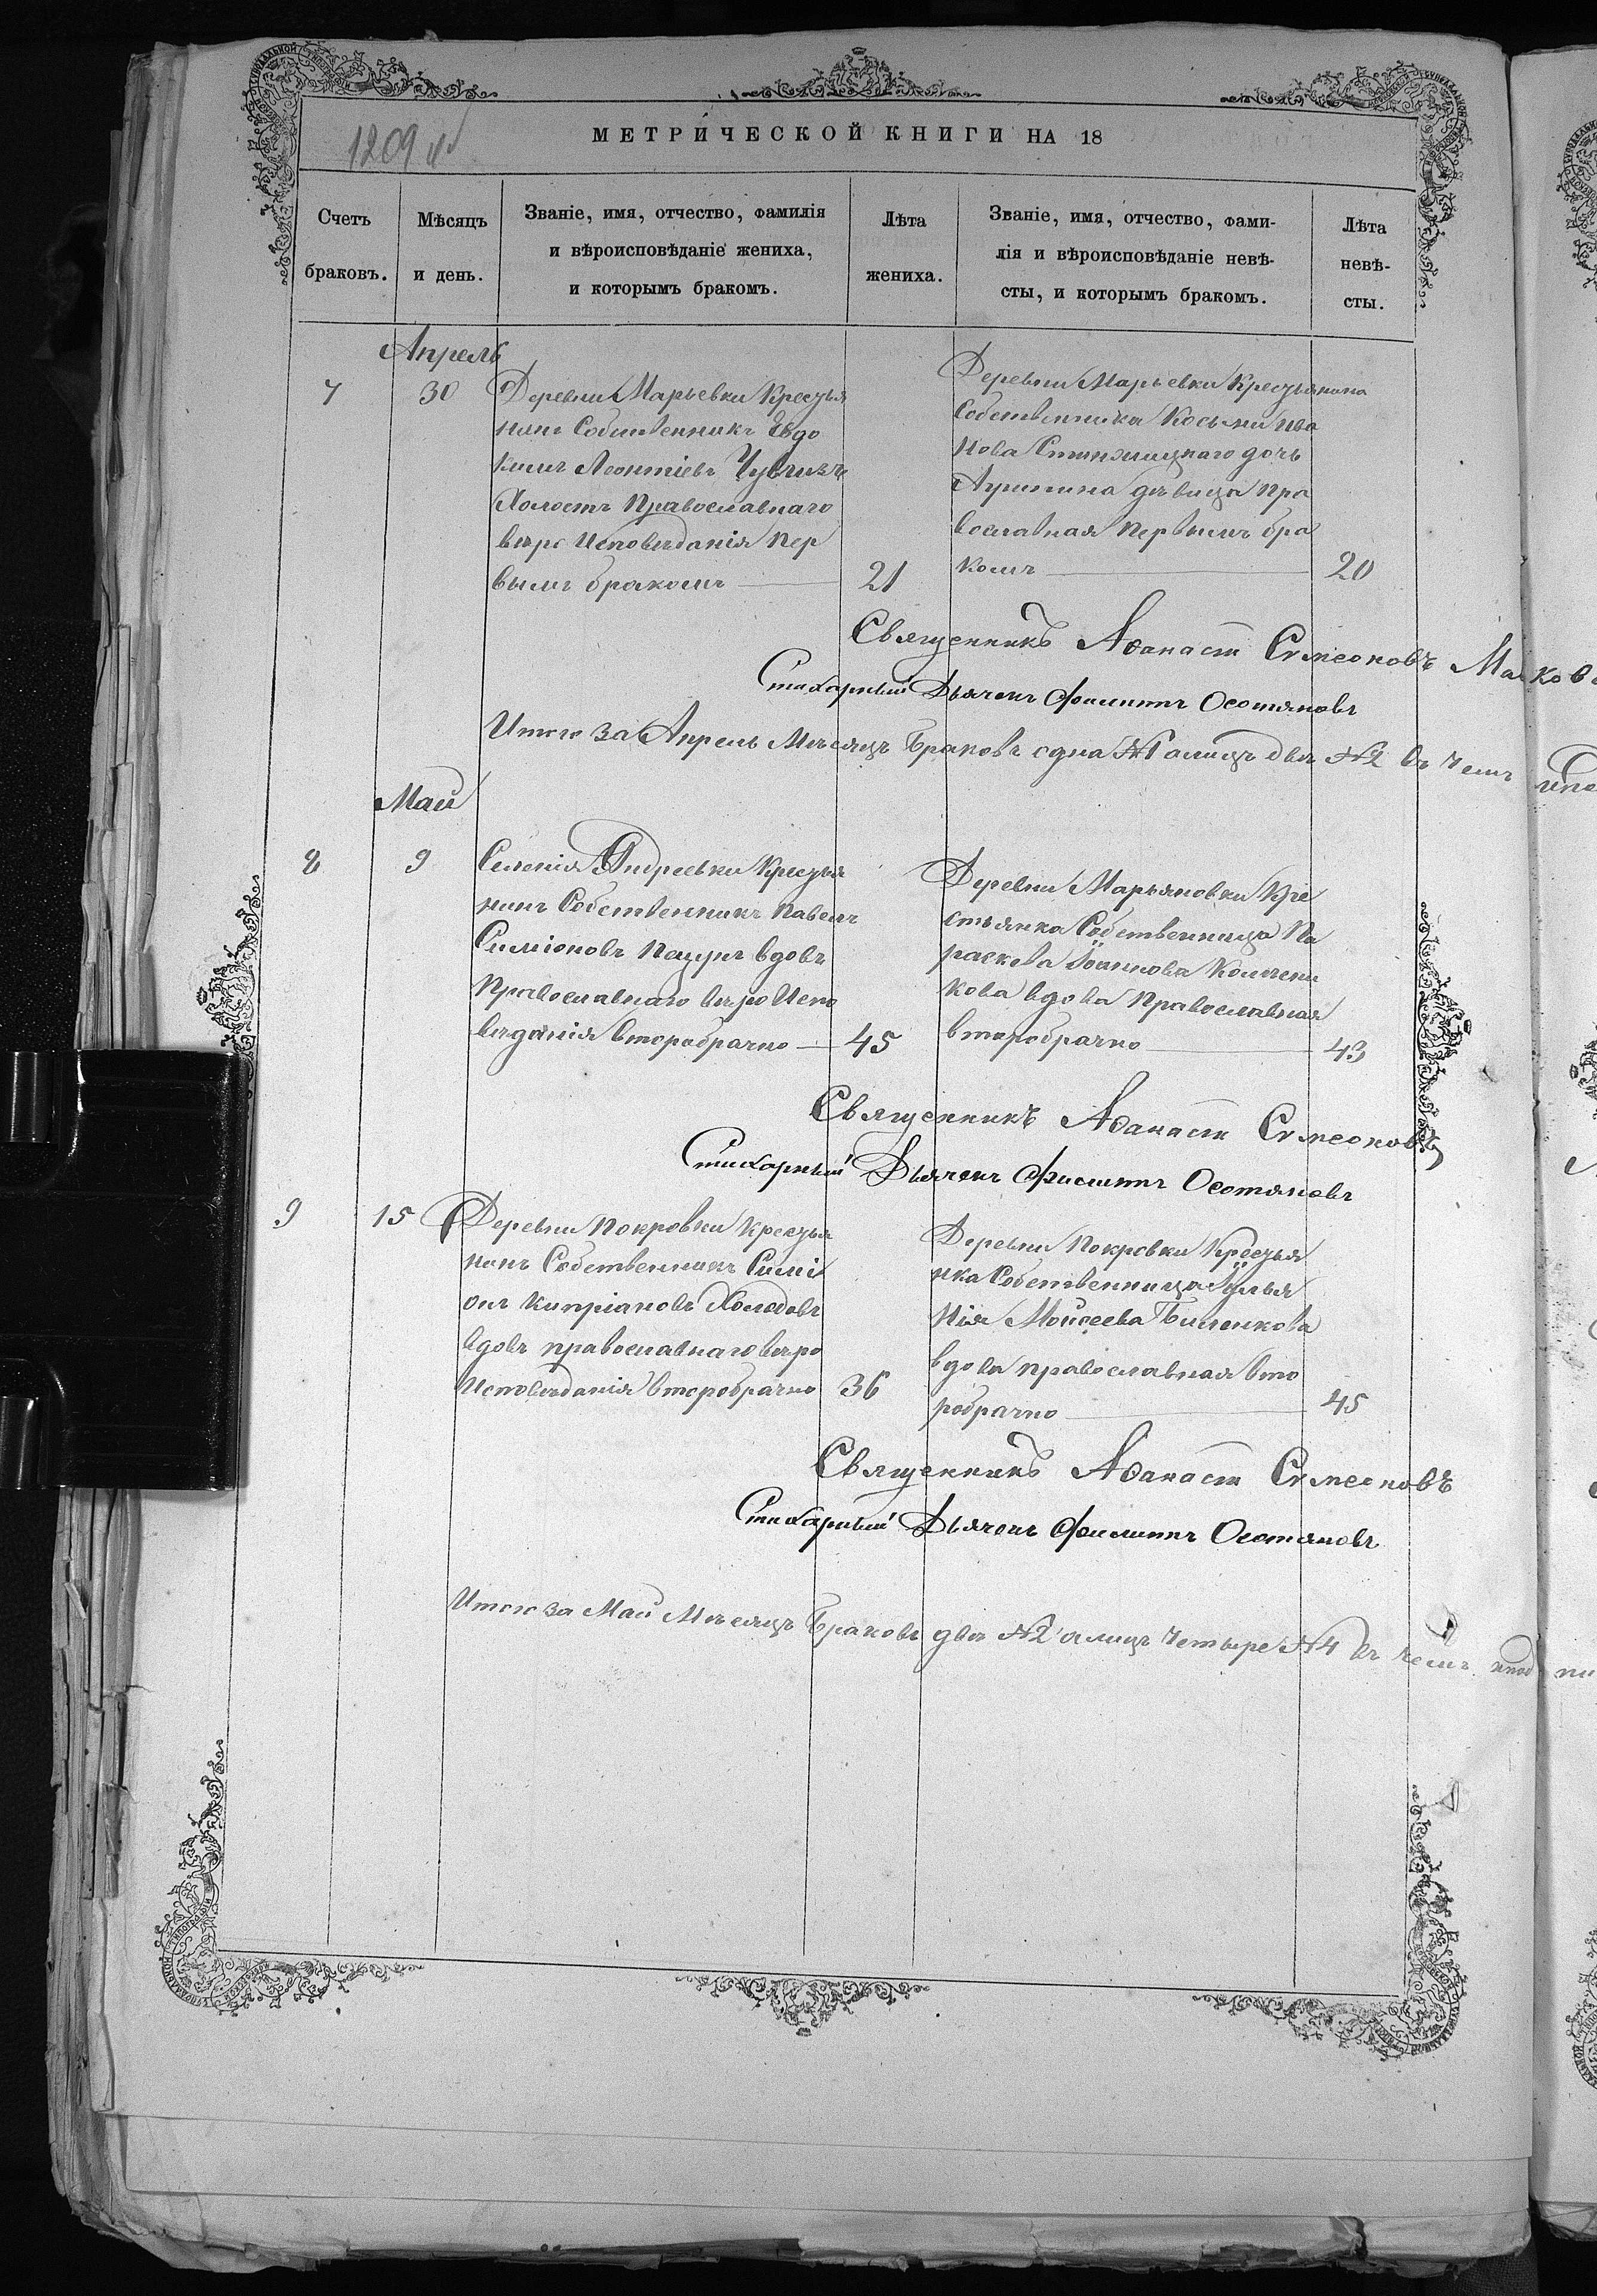 МЕТРИЧЕСКОЙ КНИГИ НА 18
1209 
Счетъ браковъ.
Мѣсяцъ и день.
Званіе, имя, отчество, фамилія
и вѣроисповѣданіе жениха,
и которымъ бракомъ.
Лѣта жениха.
Званіе, имя, отчество, фами-
лія и вѣроисповѣданіе невѣ-
сты, и которымъ бракомъ.
Лѣта невѣ-
сты.
Апрель
7
30
Деревни Марьевки Кресья
нинъ Собственникъ Евдо
кимъ Леонтіевъ
Холостъ Православнаго
вѣро Исповѣданія Пер
вымъ бракомъ
21
Деревни Марьевки Кресьянина
Собственника Косьми Ива
нова дочь
девица Пра
вославная Первымъ бра
комъ
20
Священникъ Аѳанасій Симеоновъ
Стихарный Дьячекъ Филиппъ Осотяновъ
Итого за Апрель Месяцъ Браковъ одна №1 а лицъ две №2 въ чемъ
Май
8
9
Селенія Андреевки Кресья
нинъ Собственникъ Павелъ
Симіоновъ Пацукъ вдовъ
Православнаго вѣро Испо
вѣданія второбрачно
45
Деревни Марьяновки Кре
стьянка Собственница Па
раскева Іоаннова
кова вдова Православная
второбрачно
43
Священникъ Аѳанасій Симеоновъ
Стихарный Дьячекъ Филиппъ Осотяновъ
9
15
Деревни Покровки Кресья
нинъ Собственникъ Симі
онъ Кипріановъ Холодовъ
вдовъ православнаго вѣро
Исповѣданія второбрачно
36
Деревни Покровки Кресья
нка Собственница Іулья
нія Мойсеева
вдова православная вто
робрачно
45
Священникъ Аѳанасій Симеоновъ
Стихарный Дьячекъ Филиппъ Осотяновъ
Итого за Май Месяцъ Браковъ две №2 а лицъ Четыре №4 въ чемъ